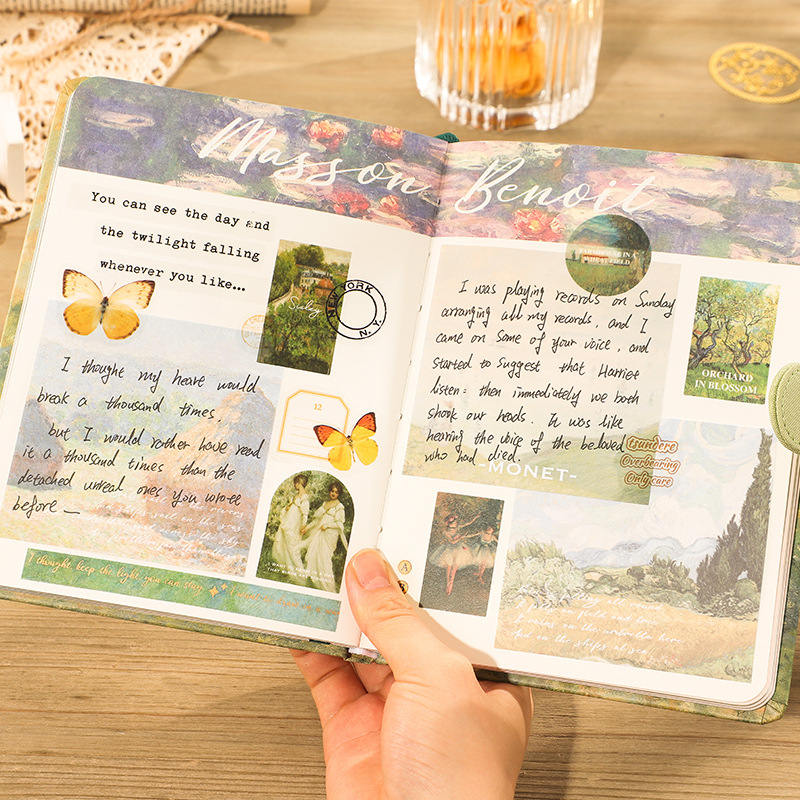 Masson Benoit
You can see the day and
the twilight falling
whenever you like...
Sisley
NEW YORK
N.Y.
I thought my heare would
break a thousand times,
but I would rother have read
it a thousand times than the
detached unreal ones you wrote
before —
12
I thought keep the light you can stay
FARMHOUSE IN A
WHEAT FIELD
I was playing records on Sunday
arranging all my records, and I
came on some of your voice, and
started to suggest that Harriet
listen: then immediately we both
shook our heads. It was like
hearing the voice of the beloved
who had died.
-MONET-
ORCHARD
IN BLOSSOM
tsundere
Overbearing
Only care
A